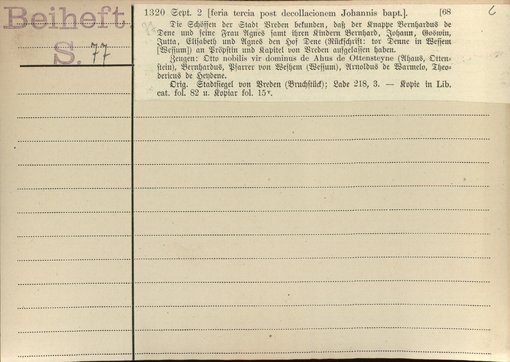 Beiheft
S. 77
1320 Sept. 2 [feria tercia post decollacionem Johannis bapt.]. [68
Die Schöffen der Stadt Vreden bekunden, daß der Knappe Bernhardus de
Dene und seine Frau Agnes samt ihren Kindern Bernhard, Johann, Goswin,
Jutta, Elisabeth und Agnes den Hof Dene (Rückschrift: tor Denne in Wessem
[Wessum]) an Pröpstin und Kapitel von Vreden aufgelassen haben.
Zeugen: Otto nobilis vir dominus de Ahus de Ottensteyne (Ahaus, Otten-
stein), Bernhardus, Pfarrer von Westhem (Wessum), Arnoldus de Warmelo, Theo-
dericus de Heydene.
Orig. Stadtsiegel von Vreden (Bruchstück); Lade 218, 3. — Kopie in Lib.
cat. fol. 82 u. Kopiar fol. 15v.